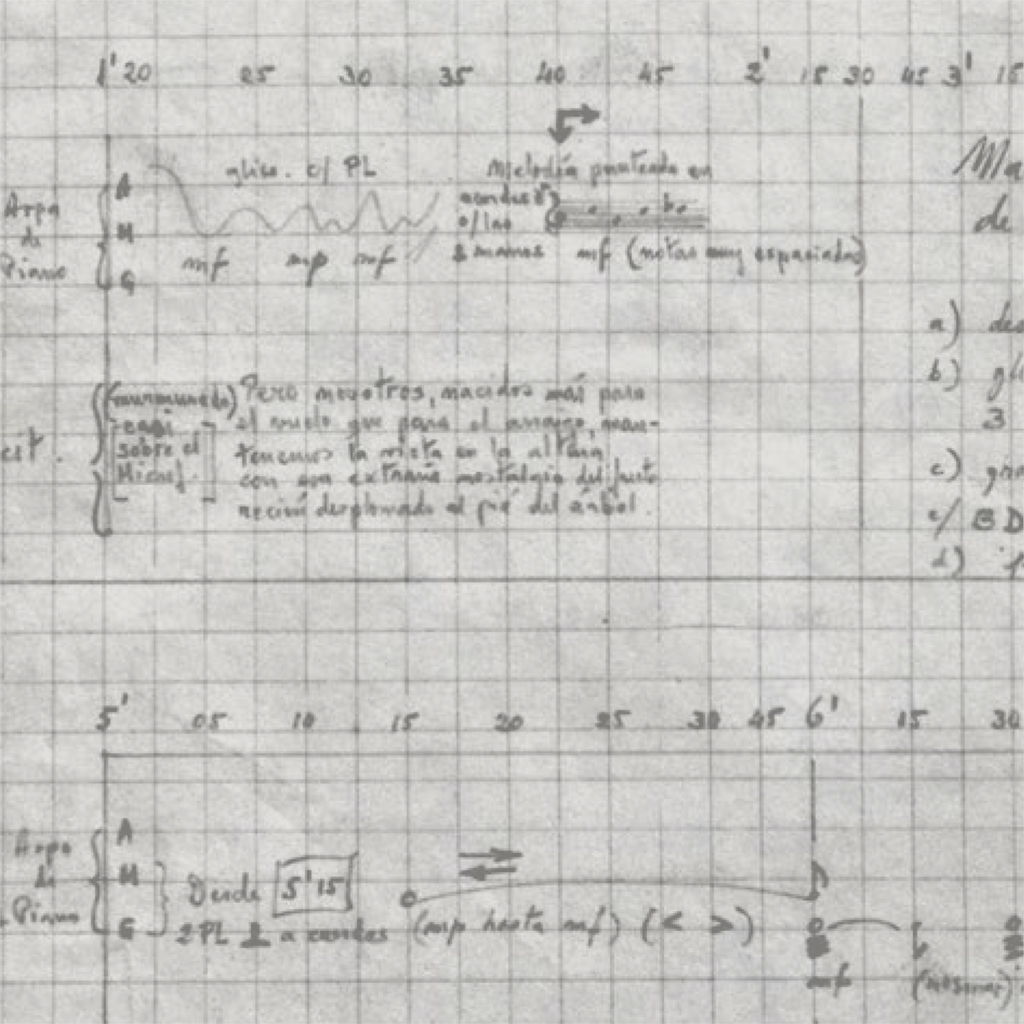 1' 20 25 30 35 40 45 2' 15 30 45 3' 15
gliss. c/ PL
Melodía punteada en
Arpa
de
Piano
A
M
G
acordes
c/las
2 manos
mf mp mf
mf (notas muy espaciadas)
Ma
de
a) des
b) gli
3
c) gira
c/ BD
d)
cit.
(murmurado)
casi
sobre el
Microf.
Pero nosotros, nacidos más para
el vuelo que para el arraigo, man-
tenemos la vista en la altura
con esa extraña nostalgia del fruto
recién desplomado al pié del árbol.
5' 05 10 15 20 25 30 45 6' 15 30
Arpa
de
Piano
A
M
G
Desde 5'15
2 PL a cuerdas (mp hasta mf) (< >)
mf
(resonar)